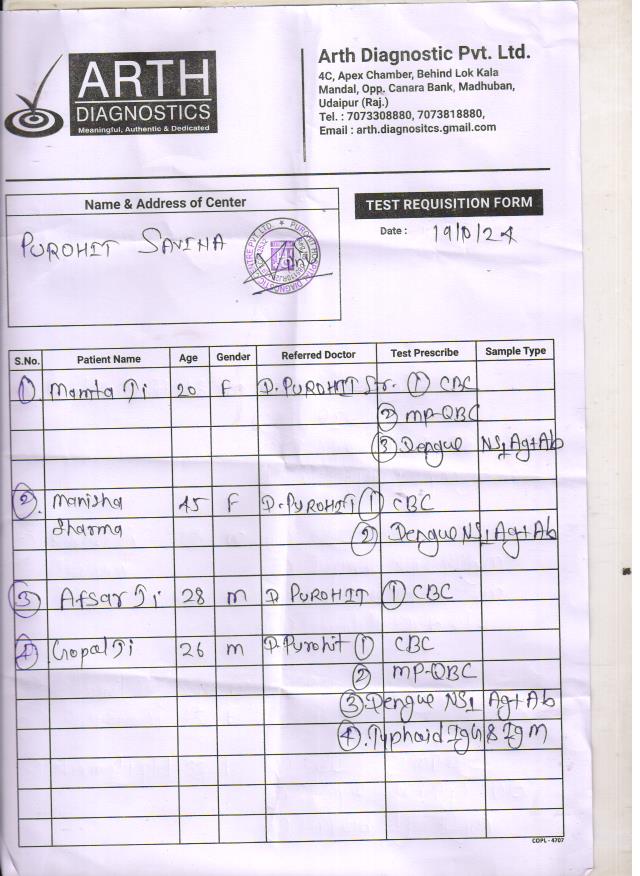 ARTH
DIAGNOSTICS
Meaningful, Authentic & Dedicated
Arth Diagnostic Pvt. Ltd.
4C, Apex Chamber, Behind Lok Kala
Mandal, Opp. Canara Bank, Madhuban,
Udaipur (Raj.)
Tel. : 7073308880, 7073818880,
Email : arth.diagnositcs.gmail.com
Name & Address of Center
PUROHIT SAVINA
TEST REQUISITION FORM
Date :
S.No. Patient Name Age Gender Referred Doctor Test Prescribe Sample Type
1 Mamta Ji 20 F D. PUROHIT Sr. 1 CBC
2 MP-QBC
3 Dengue NS1 Ag+Ab
2. Manisha 45 F D. PUROHIT 1 CBC
Sharma 2 Dengue NS1 Ag+Ab
3 Afsar Ji 28 M D PUROHIT 1 CBC
4 Gopal Ji 26 M D. Purohit 1 CBC
2 MP-QBC
3. Dengue NS1 Ag+Ab
4. Typhoid IgG & IgM
COPL - 4707